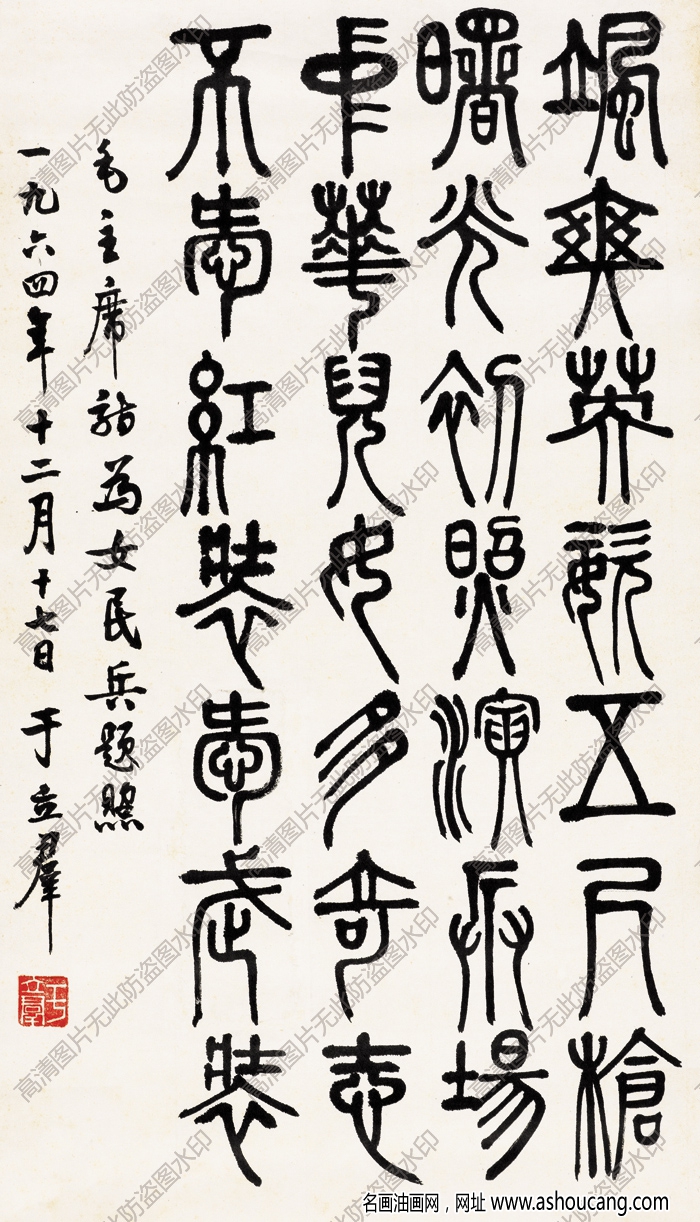 颯爽英姿五尺槍
曙光初照演兵場
中華兒女多奇志
不愛紅裝愛武裝
毛主席詩為女民兵題照
一九六四年十二月十七日 于立羣
于立羣
高清图片无此防盗图水印
名画油画网，网址 www.ashoucang.com